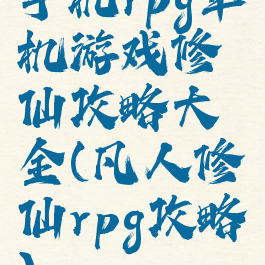 手机rpg单
机游戏修
仙攻略大
全(凡人修
仙rpg攻略
)